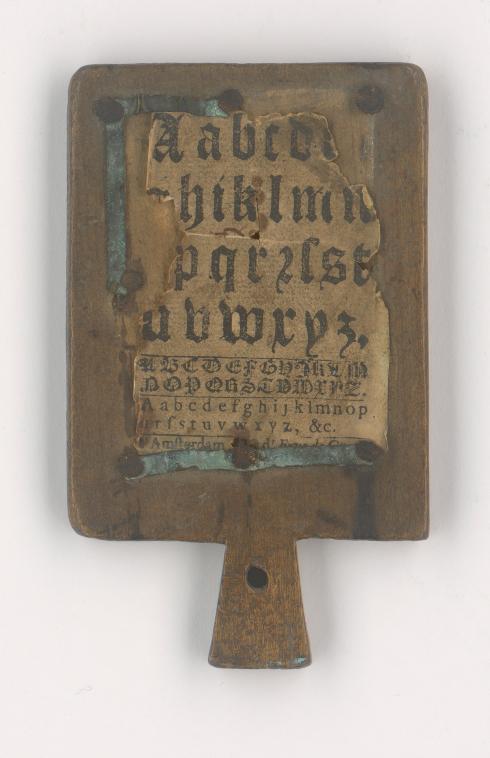 A a b c d
h i k l m n
p q r ꝛ ſ s t
u v w x y z.
A B C D E F G H J K L M
N O P Q R S T V W X Y Z.
A a b c d e f g h i j k l m n o p
q r ſ s t u v w x y z, &c.
Amſterdam